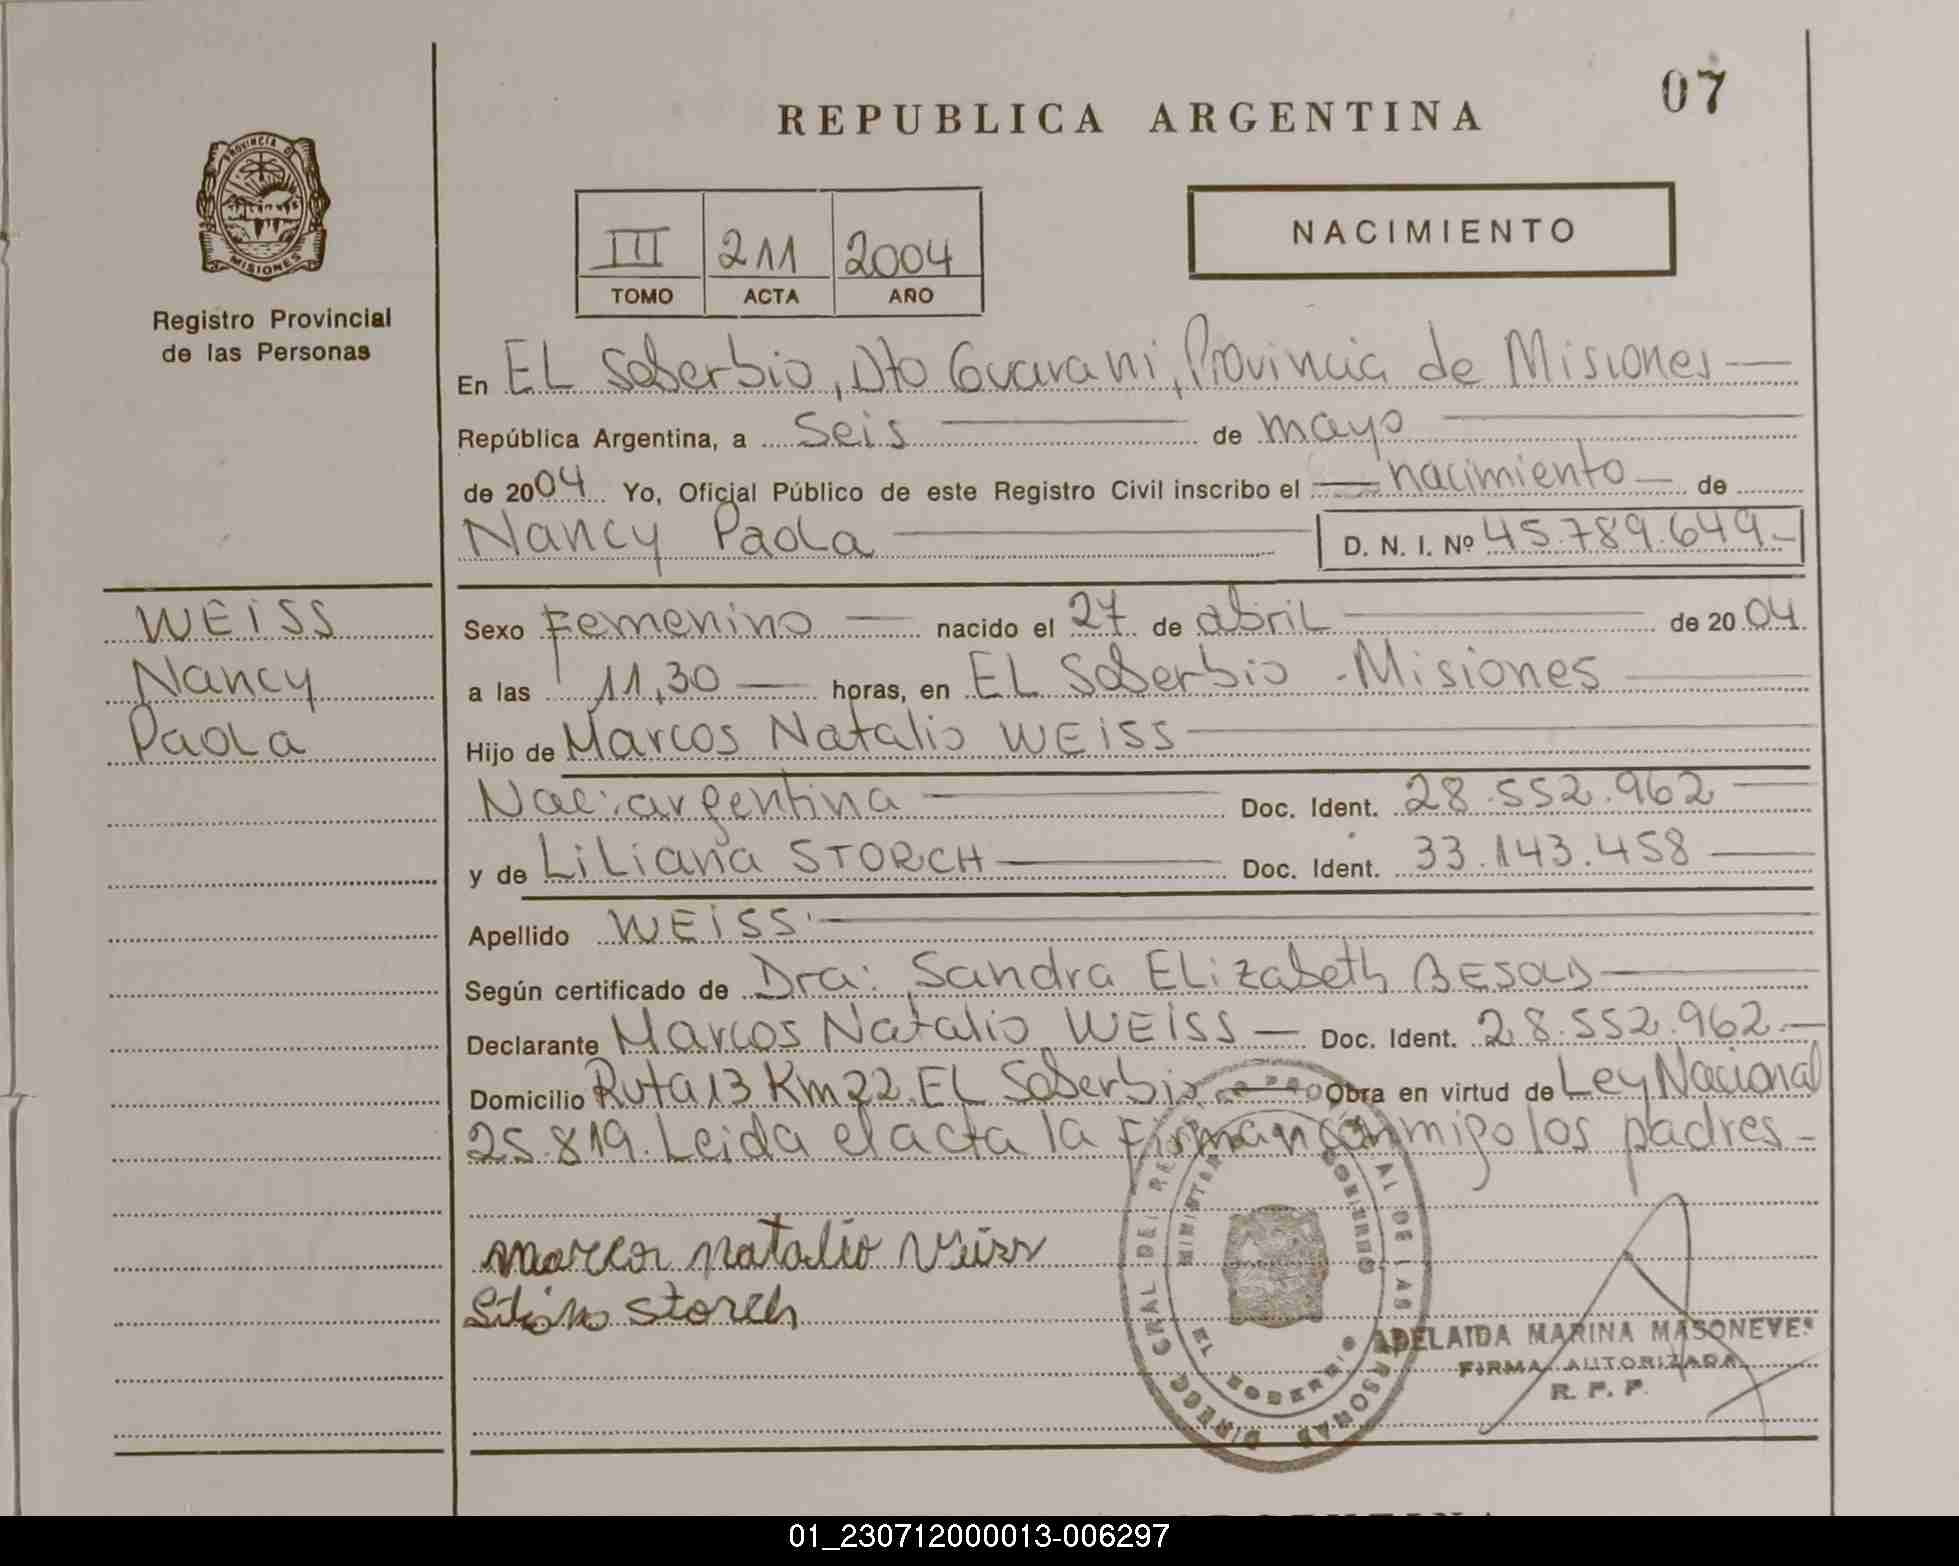 REPUBLICA ARGENTINA
07
PROVINCIA DE
MISIONES
Registro Provincial
de las Personas
III 211 2004
TOMO ACTA AÑO
NACIMIENTO
En EL Soberbio, Dto Guarani, Provincia de Misiones
República Argentina, a Seis de mayo
de 2004 Yo, Oficial Público de este Registro Civil inscribo el nacimiento de
Nancy Paola
D. N. I. Nº 45.789.649
WEISS
Nancy
Paola
Sexo Femenino nacido el 27 de abril de 2004
a las 11,30 horas, en EL Soberbio - Misiones
Hijo de Marcos Natalio WEISS
Nac: argentina Doc. Ident. 28.552.962
y de LiLiana STORCH Doc. Ident. 33.143.458
Apellido WEISS
Según certificado de Dra: Sandra ELizabeth BESOLD
Declarante Marcos Natalio WEISS Doc. Ident. 28.552.962
Domicilio Ruta 13 Km 22. EL Soberbio Obra en virtud de Ley Nacional
25.819. Leida el acta la firman conmigo los padres
Marcos natalio Veiss
Storch
EL SOBERBIO
ADELAIDA MARINA MASONEVES
FIRMA AUTORIZADA
R. P. P.
01_230712000013-006297